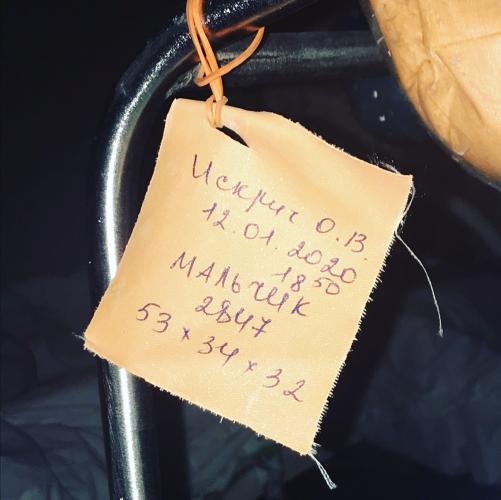 Искрич О.В.
12.01.2020
18 50
МАЛЬЧИК
2847
53 × 34 × 32